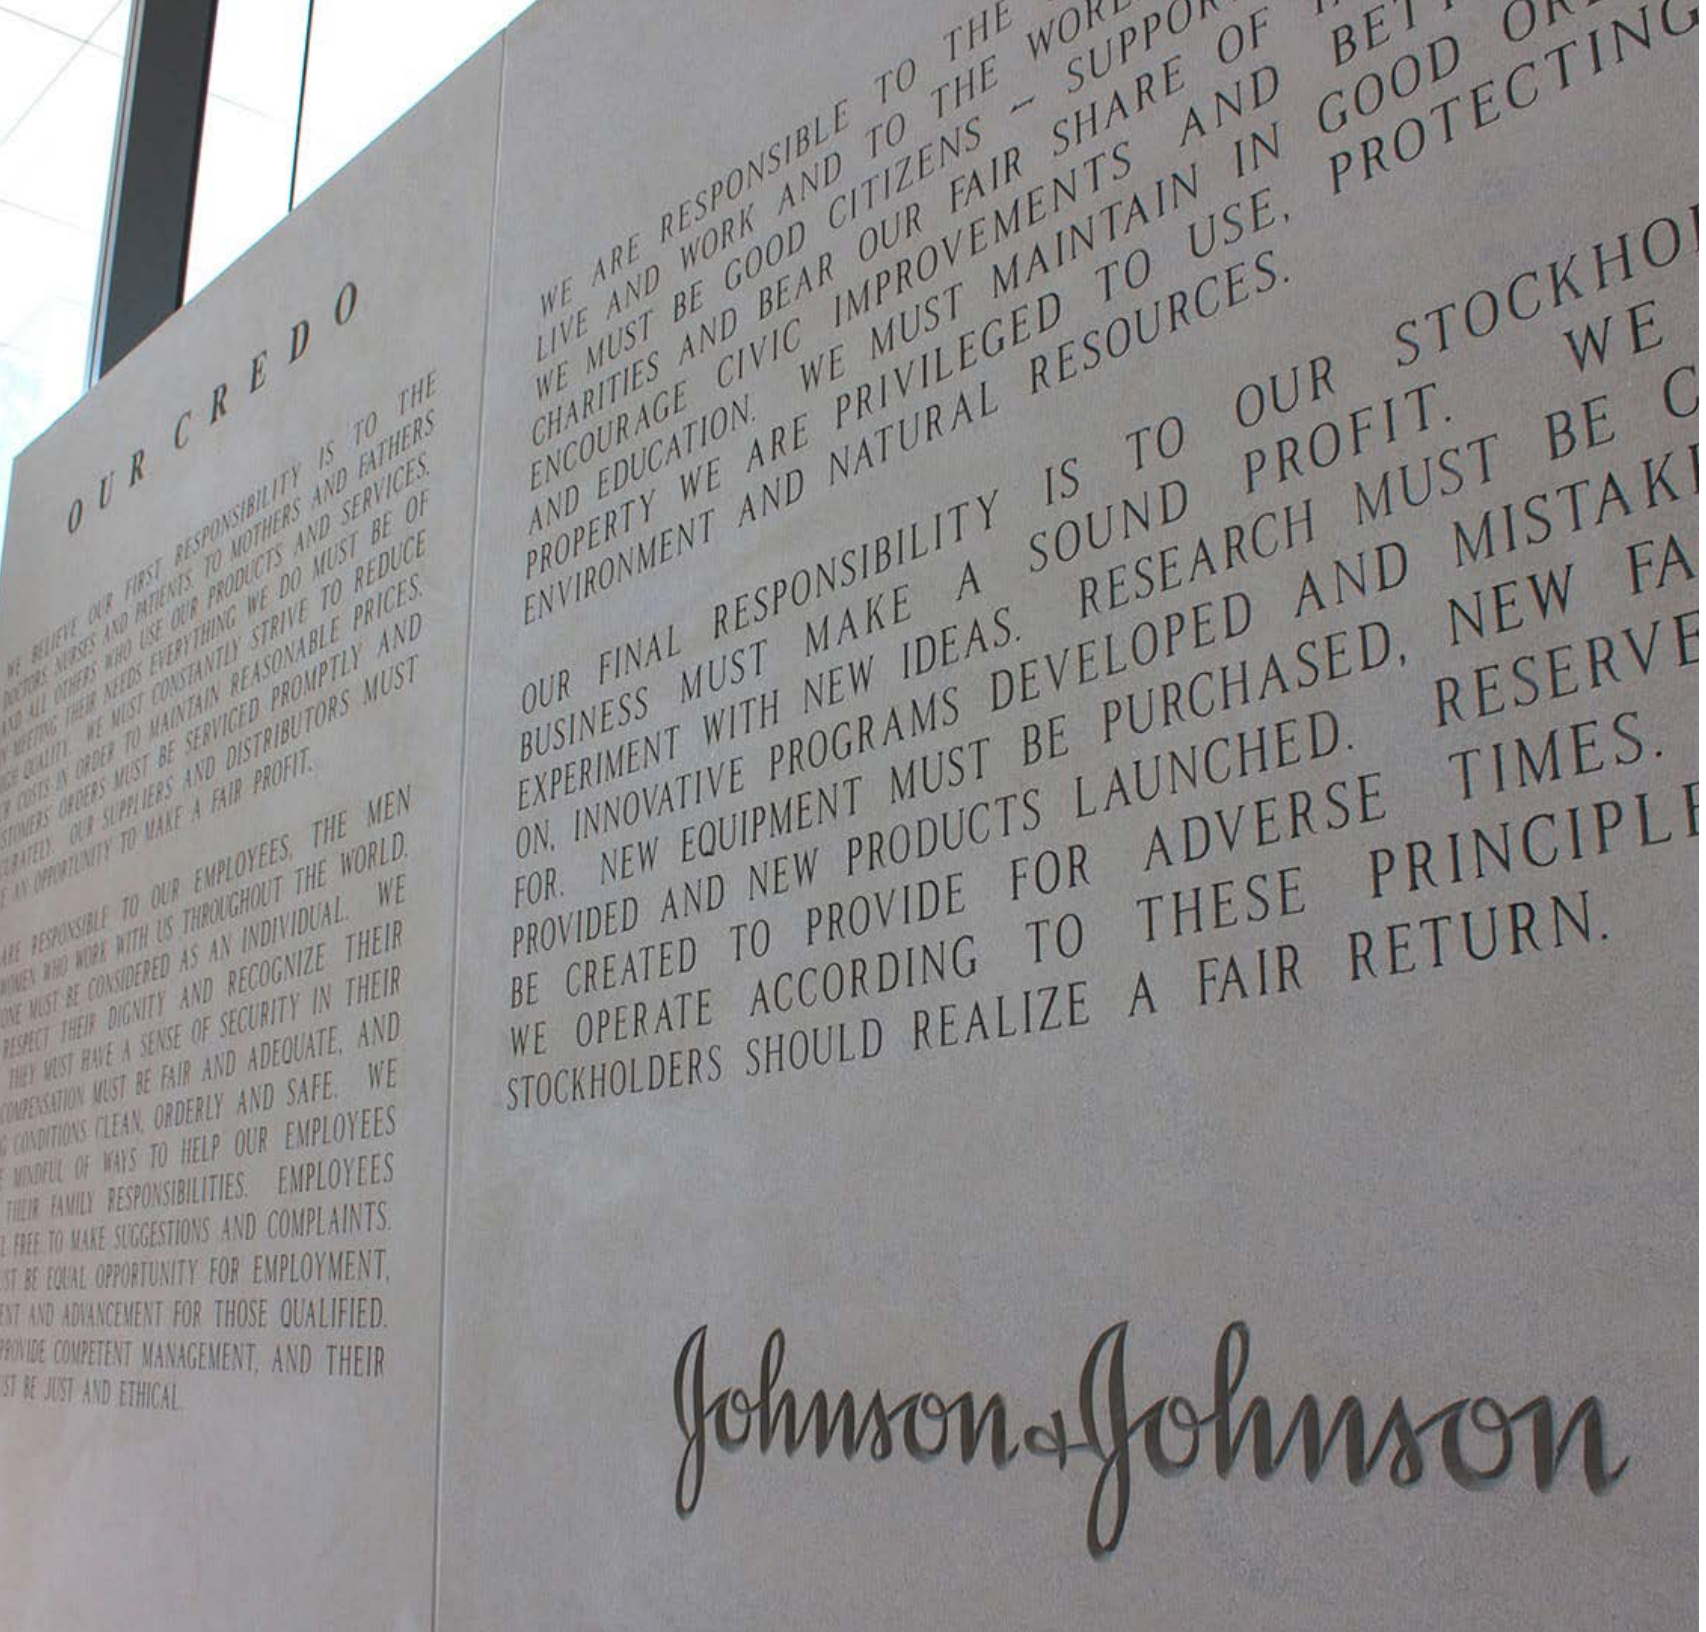 OUR CREDO
WE BELIEVE OUR FIRST RESPONSIBILITY IS TO THE
DOCTORS, NURSES AND PATIENTS, TO MOTHERS AND FATHERS
AND ALL OTHERS WHO USE OUR PRODUCTS AND SERVICES.
IN MEETING THEIR NEEDS EVERYTHING WE DO MUST BE OF
QUALITY. WE MUST CONSTANTLY STRIVE TO REDUCE
COSTS IN ORDER TO MAINTAIN REASONABLE PRICES.
ORDERS MUST BE SERVICED PROMPTLY AND
OUR SUPPLIERS AND DISTRIBUTORS MUST
AN OPPORTUNITY TO MAKE A FAIR PROFIT.
ARE RESPONSIBLE TO OUR EMPLOYEES, THE MEN
WOMEN WHO WORK WITH US THROUGHOUT THE WORLD.
MUST BE CONSIDERED AS AN INDIVIDUAL. WE
RESPECT THEIR DIGNITY AND RECOGNIZE THEIR
THEY MUST HAVE A SENSE OF SECURITY IN THEIR
COMPENSATION MUST BE FAIR AND ADEQUATE, AND
CONDITIONS CLEAN, ORDERLY AND SAFE. WE
MINDFUL OF WAYS TO HELP OUR EMPLOYEES
THEIR FAMILY RESPONSIBILITIES. EMPLOYEES
FREE TO MAKE SUGGESTIONS AND COMPLAINTS.
BE EQUAL OPPORTUNITY FOR EMPLOYMENT,
AND ADVANCEMENT FOR THOSE QUALIFIED.
PROVIDE COMPETENT MANAGEMENT, AND THEIR
BE JUST AND ETHICAL.
WE ARE RESPONSIBLE TO THE
LIVE AND WORK AND TO THE
WE MUST BE GOOD CITIZENS – SUPPOR
CHARITIES AND BEAR OUR FAIR SHARE OF
ENCOURAGE CIVIC IMPROVEMENTS AND BET
AND EDUCATION. WE MUST MAINTAIN IN GOOD OR
PROPERTY WE ARE PRIVILEGED TO USE, PROTECTING
ENVIRONMENT AND NATURAL RESOURCES.
OUR FINAL RESPONSIBILITY IS TO OUR STOCKHO
BUSINESS MUST MAKE A SOUND PROFIT. WE
EXPERIMENT WITH NEW IDEAS. RESEARCH MUST BE C
ON, INNOVATIVE PROGRAMS DEVELOPED AND MISTAK
FOR. NEW EQUIPMENT MUST BE PURCHASED, NEW FA
PROVIDED AND NEW PRODUCTS LAUNCHED. RESERVE
BE CREATED TO PROVIDE FOR ADVERSE TIMES.
WE OPERATE ACCORDING TO THESE PRINCIPLE
STOCKHOLDERS SHOULD REALIZE A FAIR RETURN.
Johnson & Johnson